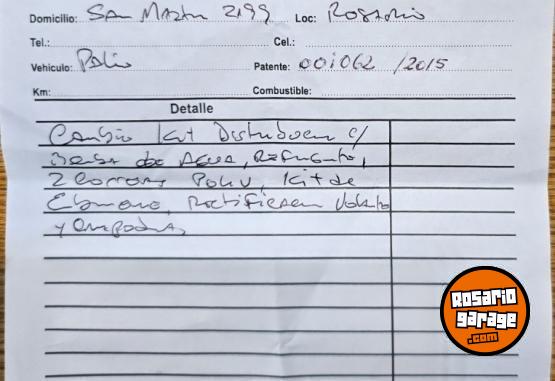 Domicilio: San Martin 2199 Loc: Rosario
Tel.: Cel.:
Vehiculo: Palio Patente: 001062 /2015
Km: Combustible:
Detalle
Cambio kit Distribucion c/
Bomba de Agua, Refrigerante,
2 Correas Poly V, Kit de
Embrague, Rectificacion Volante
y
Rosario
garage
.com